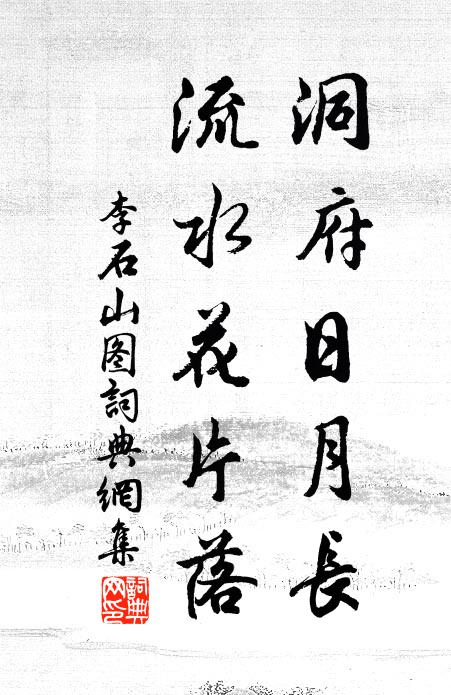 洞府日月長
流水花片落
李石山图詞典網集
詞典网印